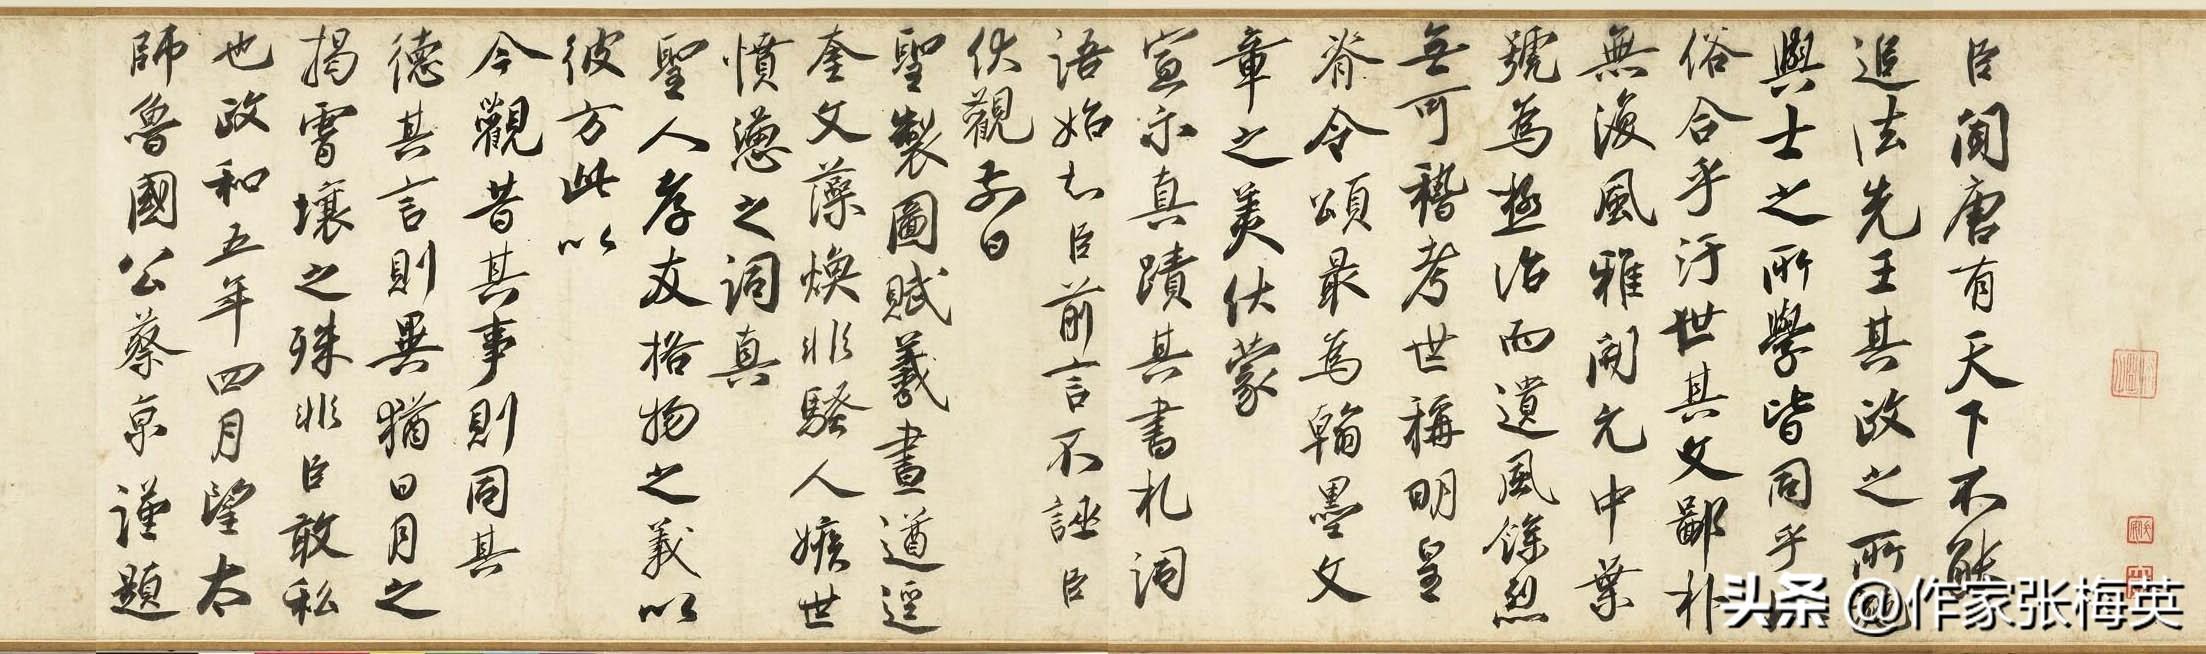 臣聞唐有天下不能
追法先王其政之所
與士之所學皆同乎
俗合乎汙世其文鄙朴
無復風雅開元中葉
號為極治而遺風餘烈
無可稽考世稱明皇
脊令頌最為翰墨文
章之美伏蒙
宣示真蹟其書札詞
語始知臣前言不誣臣
伏觀前日
聖製圖賦羲畫遒逕
奎文藻煥非騷人嫉世
憤懣之詞真
聖人孝友格物之義以
彼方此以
今觀昔其事則同其
德其言則異猶日月之
揭霄壤之殊非臣敢私
也政和五年四月望太
師魯國公蔡京謹題
头条 @作家张梅英